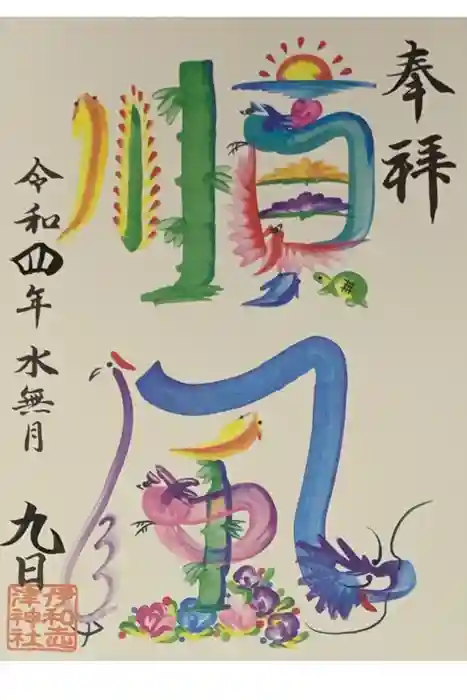 奉拝
順風
令和四年水無月
九日
伊和志
津神社